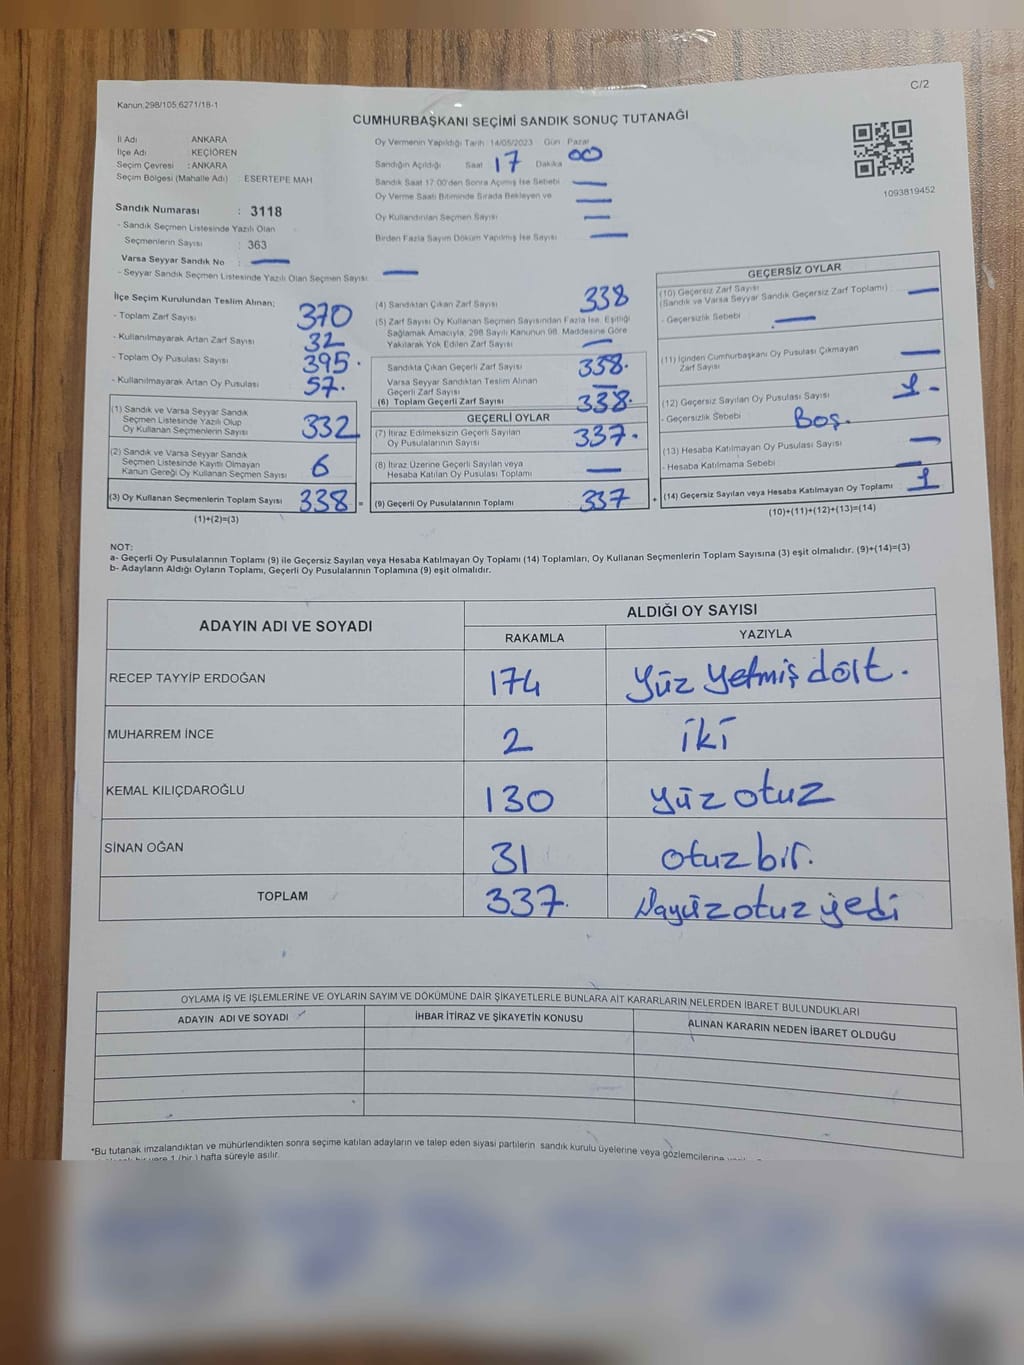 C/2
Kanun:298/105,6271/18-1
CUMHURBAŞKANI SEÇİMİ SANDIK SONUÇ TUTANAĞI
İl Adı ANKARA
İlçe Adı KEÇİÖREN
Seçim Çevresi : ANKARA
Seçim Bölgesi (Mahalle Adı) ESERTEPE MAH
Sandık Numarası : 3118
- Sandık Seçmen Listesinde Yazılı Olan
Seçmenlerin Sayısı : 363
Varsa Seyyar Sandık No : —
- Seyyar Sandık Seçmen Listesinde Yazılı Olan Seçmen Sayısı: —
Oy Vermenin Yapıldığı Tarih :14/05/2023 Gün : Pazar
Sandığın Açıldığı Saat 17 Dakika 00
Sandık Saat 17:00'den Sonra Açılmış İse Sebebi —
Oy Verme Saati Bitiminde Sırada Bekleyen ve —
Oy Kullandırılan Seçmen Sayısı —
Birden Fazla Sayım Döküm Yapılmış İse Sayısı —
1093819452
İlçe Seçim Kurulundan Teslim Alınan;
- Toplam Zarf Sayısı 370
- Kullanılmayarak Artan Zarf Sayısı 32
- Toplam Oy Pusulası Sayısı 395.
- Kullanılmayarak Artan Oy Pusulası 57.
(1) Sandık ve Varsa Seyyar Sandık
Seçmen Listesinde Yazılı Olup
Oy Kullanan Seçmenlerin Sayısı 332
(2) Sandık ve Varsa Seyyar Sandık
Seçmen Listesinde Kayıtlı Olmayan
Kanun Gereği Oy Kullanan Seçmen Sayısı 6
(3) Oy Kullanan Seçmenlerin Toplam Sayısı 338 =
(1)+(2)=(3)
(4) Sandıktan Çıkan Zarf Sayısı 338
(5) Zarf Sayısı Oy Kullanan Seçmen Sayısından Fazla İse, Eşitliği
Sağlamak Amacıyla, 298 Sayılı Kanunun 98. Maddesine Göre
Yakılarak Yok Edilen Zarf Sayısı —
Sandıkta Çıkan Geçerli Zarf Sayısı 338.
Varsa Seyyar Sandıktan Teslim Alınan
Geçerli Zarf Sayısı —
(6) Toplam Geçerli Zarf Sayısı 338.
GEÇERLİ OYLAR
(7) İtiraz Edilmeksizin Geçerli Sayılan
Oy Pusulalarının Sayısı 337.
(8) İtiraz Üzerine Geçerli Sayılan veya
Hesaba Katılan Oy Pusulası Toplamı —
(9) Geçerli Oy Pusulalarının Toplamı 337 +
GEÇERSİZ OYLAR
(10) Geçersiz Zarf Sayısı
(Sandık ve Varsa Seyyar Sandık Geçersiz Zarf Toplamı) : —
- Geçersizlik Sebebi : —
(11) İçinden Cumhurbaşkanı Oy Pusulası Çıkmayan
Zarf Sayısı —
(12) Geçersiz Sayılan Oy Pusulası Sayısı 1 -
- Geçersizlik Sebebi Boş.
(13) Hesaba Katılmayan Oy Pusulası Sayısı —
- Hesaba Katılmama Sebebi —
(14) Geçersiz Sayılan veya Hesaba Katılmayan Oy Toplamı 1
(10)+(11)+(12)+(13)=(14)
NOT:
a- Geçerli Oy Pusulalarının Toplamı (9) ile Geçersiz Sayılan veya Hesaba Katılmayan Oy Toplamı (14) Toplamları, Oy Kullanan Seçmenlerin Toplam Sayısına (3) eşit olmalıdır. (9)+(14)=(3)
b- Adayların Aldığı Oyların Toplamı, Geçerli Oy Pusulalarının Toplamına (9) eşit olmalıdır.
ADAYIN ADI VE SOYADI ALDIĞI OY SAYISI
RAKAMLA YAZIYLA
RECEP TAYYİP ERDOĞAN 174 Yüz yetmiş dört.
MUHARREM İNCE 2 iki
KEMAL KILIÇDAROĞLU 130 yüz otuz
SİNAN OĞAN 31 otuz bir.
TOPLAM 337. üçyüz otuz yedi
OYLAMA İŞ VE İŞLEMLERİNE VE OYLARIN SAYIM VE DÖKÜMÜNE DAİR ŞİKAYETLERLE BUNLARA AİT KARARLARIN NELERDEN İBARET BULUNDUKLARI
ADAYIN ADI VE SOYADI İHBAR İTİRAZ VE ŞİKAYETİN KONUSU ALINAN KARARIN NEDEN İBARET OLDUĞU
*Bu tutanak imzalandıktan ve mühürlendikten sonra seçime katılan adayların ve talep eden siyasi partilerin sandık kurulu üyelerine veya gözlemcilerine
bir yere 1 (bir ) hafta süreyle asılır.